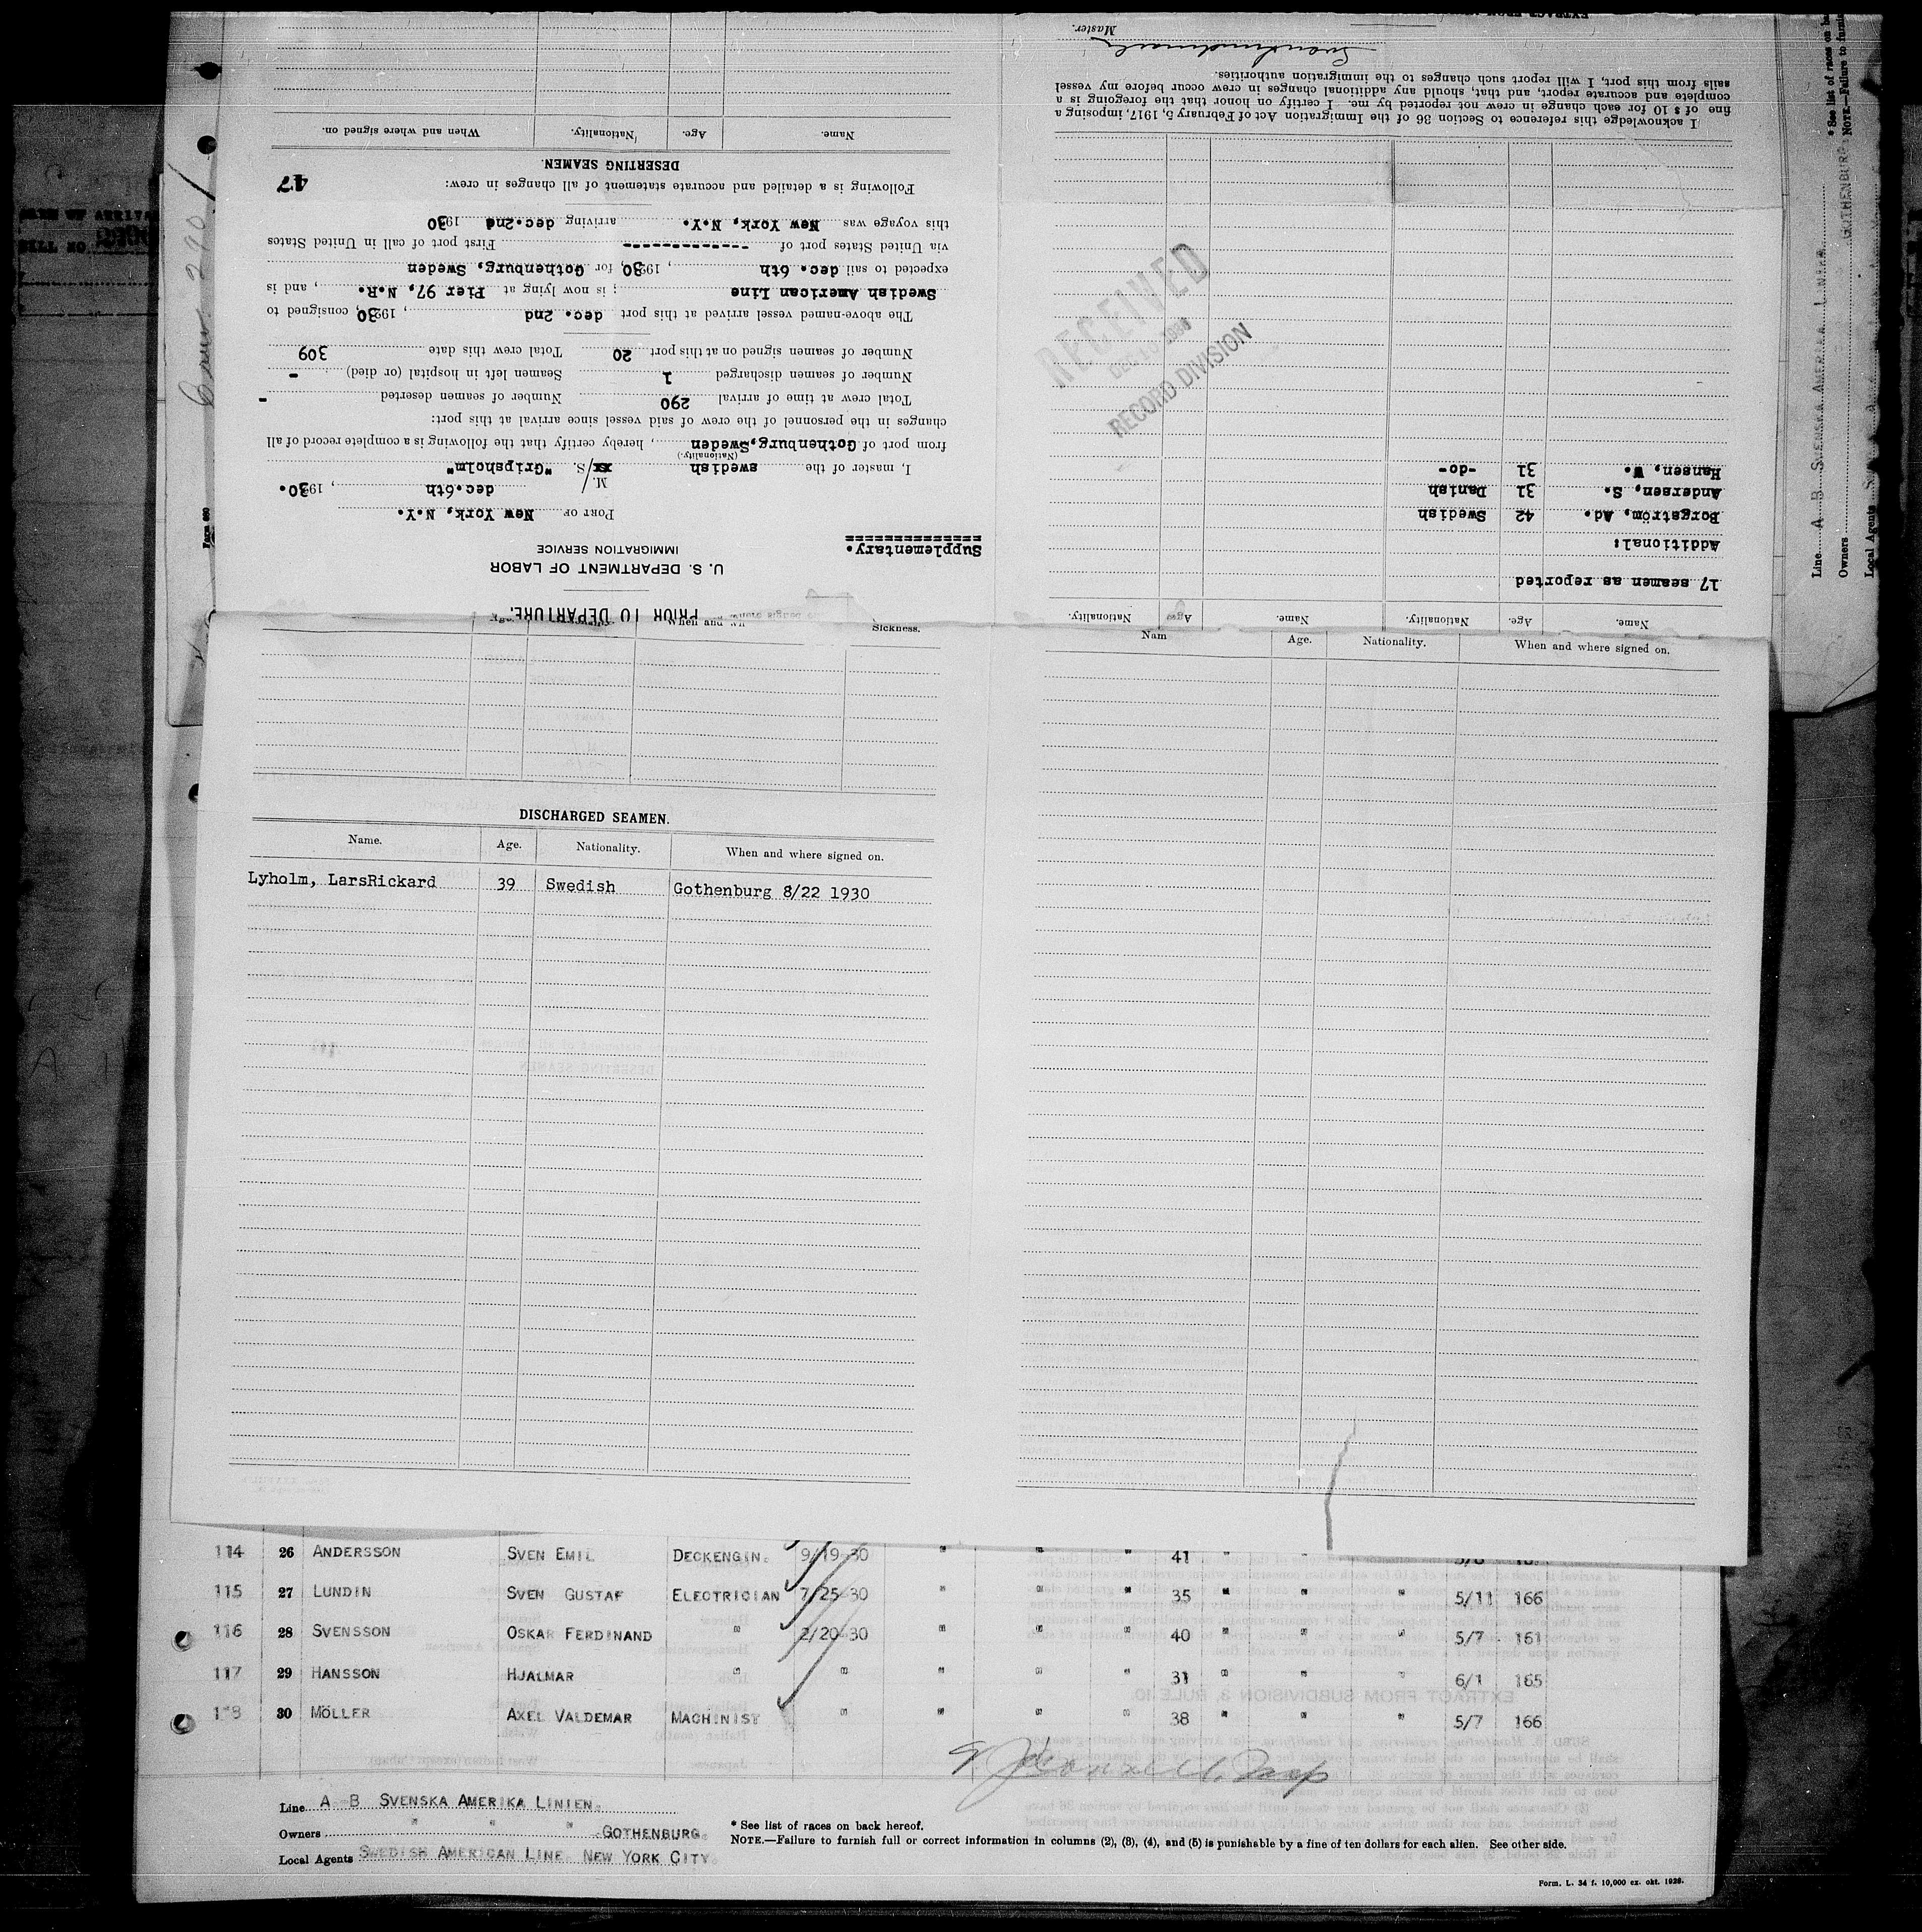 EXTRACT FROM
Master.
I acknowledge this reference to Section 36 of the Immigration Act of February 5, 1917, imposing a
fine of $ 10 for each change in crew not reported by me. I certify on honor that the foregoing is a
complete and accurate report, and that, should any additional changes in crew occur before my vessel
sails from this port, I will report such changes to the immigration authorities.
PRIOR TO DEPARTURE.
U. S. DEPARTMENT OF LABOR
IMMIGRATION SERVICE
Supplementary.
Form 680
PORT OF New York, N.Y.
dec.6th, 1930.
I, master of the swedish M/S. "Gripsholm"
(Nationality.)
from port of Gothenburg,Sweden, hereby certify that the following is a complete record of all
changes in the personnel of the crew of said vessel since arrival at this port:
Total crew at time of arrival 290 Number of seamen deserted -
Number of seamen discharged 1 Seamen left in hospital (or died) -
Number of seamen signed on at this port 20 Total crew this date 309
The above-named vessel arrived at this port dec. 2nd, 1930, consigned to
Swedish American Line; is now lying at Pier 97, N.R., and is
expected to sail dec. 6th, 1930, for Gothenburg, Sweden
via United States port of -------------- First port of call in United States
this voyage was New York, N.Y. arriving dec.2nd 1930
Following is a detailed and accurate statement of all changes in crew:
47
DESERTING SEAMEN.
Name. Age. Nationality. When and where signed on.
Name. Age. Nationality. Name. Age. Nationality.
17 seamen as reported
Additional:
Borgström, Ad. 42 Swedish
Andersen, S. 31 Danish
Hansen, W. 31 -do-
RECEIVED
RECORD DIVISION
Line A B SVENSKA AMERIKA LINIEN
Owners GOTHENBURG
Local Agents
* See list of races on
NOTE.—Failure to
290
Age. When and Sickness.
Nam Age. Nationality. When and where signed on.
DISCHARGED SEAMEN.
Name. Age. Nationality. When and where signed on.
Lyholm, LarsRickard 39 Swedish Gothenburg 8/22 1930
114 26 ANDERSSON SVEN EMIL DECKENGIN. 9/19-30 " " " 41 " "
115 27 LUNDIN SVEN GUSTAF ELECTRICIAN 7/25-30 " " " 35 " " " 5/11 166
116 28 SVENSSON OSKAR FERDINAND " 2/20-30 " " " 40 " " " 5/7 161
117 29 HANSSON HJALMAR " " " " " 31 " " " 6/1 165
118 30 MÖLLER AXEL VALDEMAR MACHINIST " " " " 38 " " " 5/7 166
EXTRACT FROM SUBDIVISION 3, RULE 10
Line A-B SVENSKA AMERIKA LINIEN.
Owners " " " GOTHENBURG.
Local Agents SWEDISH AMERICAN LINE NEW YORK CITY.
* See list of races on back hereof.
NOTE.—Failure to furnish full or correct information in columns (2), (3), (4), and (5) is punishable by a fine of ten dollars for each alien. See other side.
Form. L. 34 f. 10,000 ex. okt. 1928.